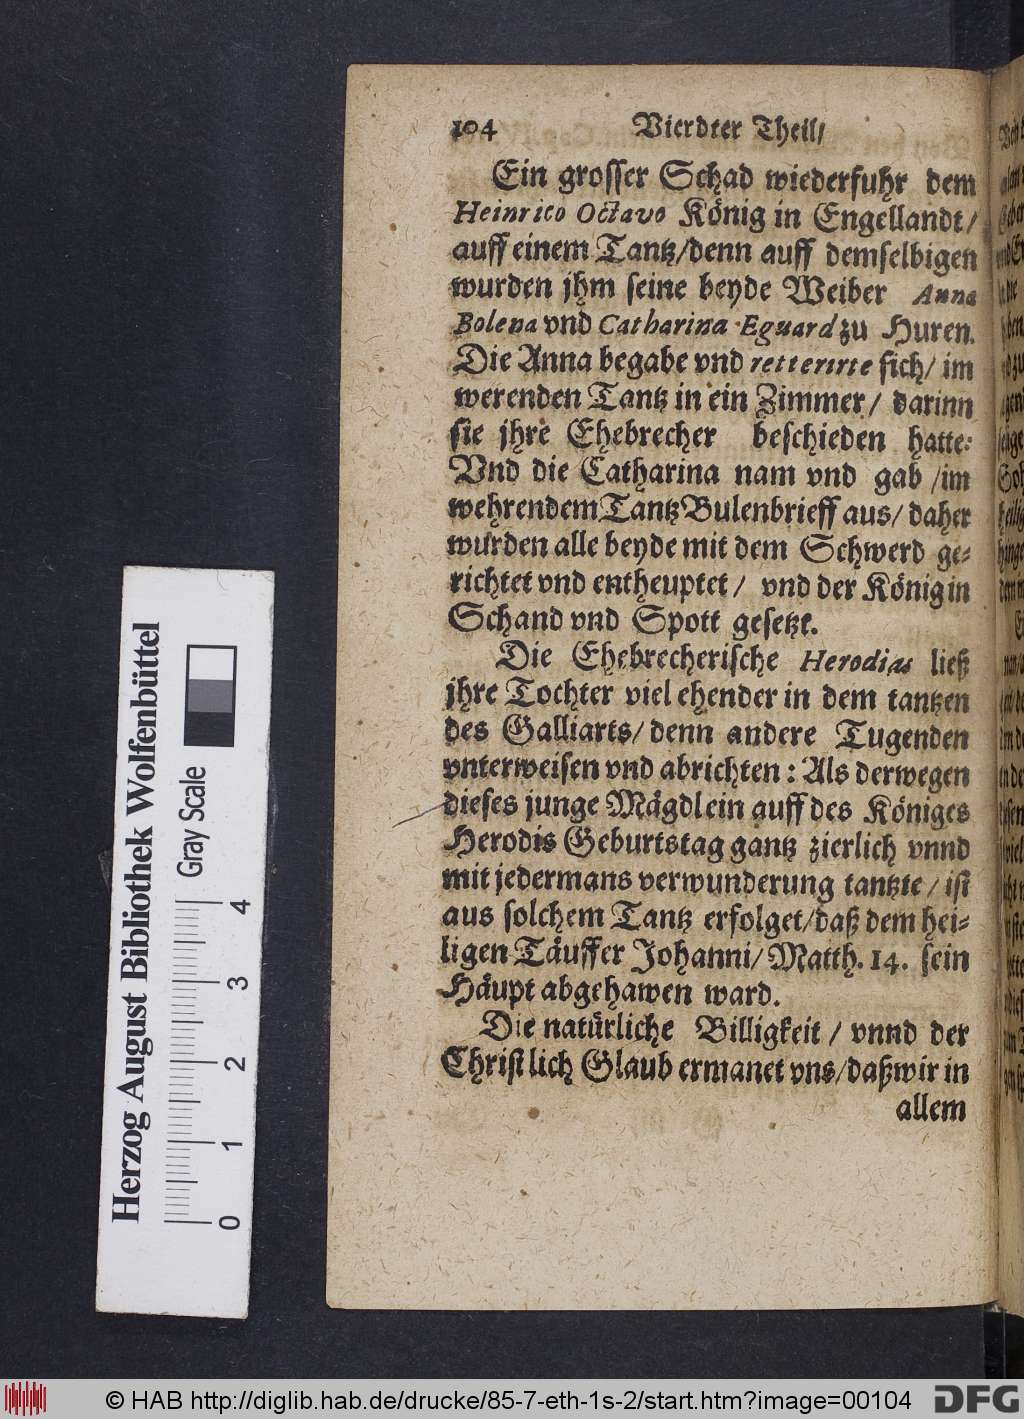 104 Vierdter Theil/
Ein grosser Schad wiederfuhr dem
Heinrico Octavo König in Engellandt/
auff einem Tantz/denn auff demselbigen
wurden jhm seine beyde Weiber Anna
Bolena vnd Catharina Eguard zu Huren.
Die Anna begabe vnd retterirte sich/ im
werenden Tantz in ein Zimmer/ darinn
sie jhre Ehebrecher beschieden hatte:
Vnd die Catharina nam vnd gab /im
wehrendem Tantz Bulenbrieff aus/ daher
wurden alle beyde mit dem Schwerd ge-
richtet vnd entheuptet/ vnd der König in
Schand vnd Spott gesetzt.
Die Ehebrecherische Herodias ließ
jhre Tochter viel ehender in dem tantzen
des Galliarts/ denn andere Tugenden
vnterweisen vnd abrichten: Als derwegen
dieses junge Mägdlein auff des Königes
Herodis Geburtstag gantz zierlich vnnd
mit jedermans verwunderung tantzte/ ist
aus solchem Tantz erfolget/daß dem hei-
ligen Täuffer Johanni/ Matth. 14. sein
Häupt abgehawen ward.
Die natürliche Billigkeit/ vnnd der
Christlich Glaub ermanet vns/daß wir in
allem
Herzog August Bibliothek Wolfenbüttel
Gray Scale
0 1 2 3 4
© HAB http://diglib.hab.de/drucke/85-7-eth-1s-2/start.htm?image=00104
DFG